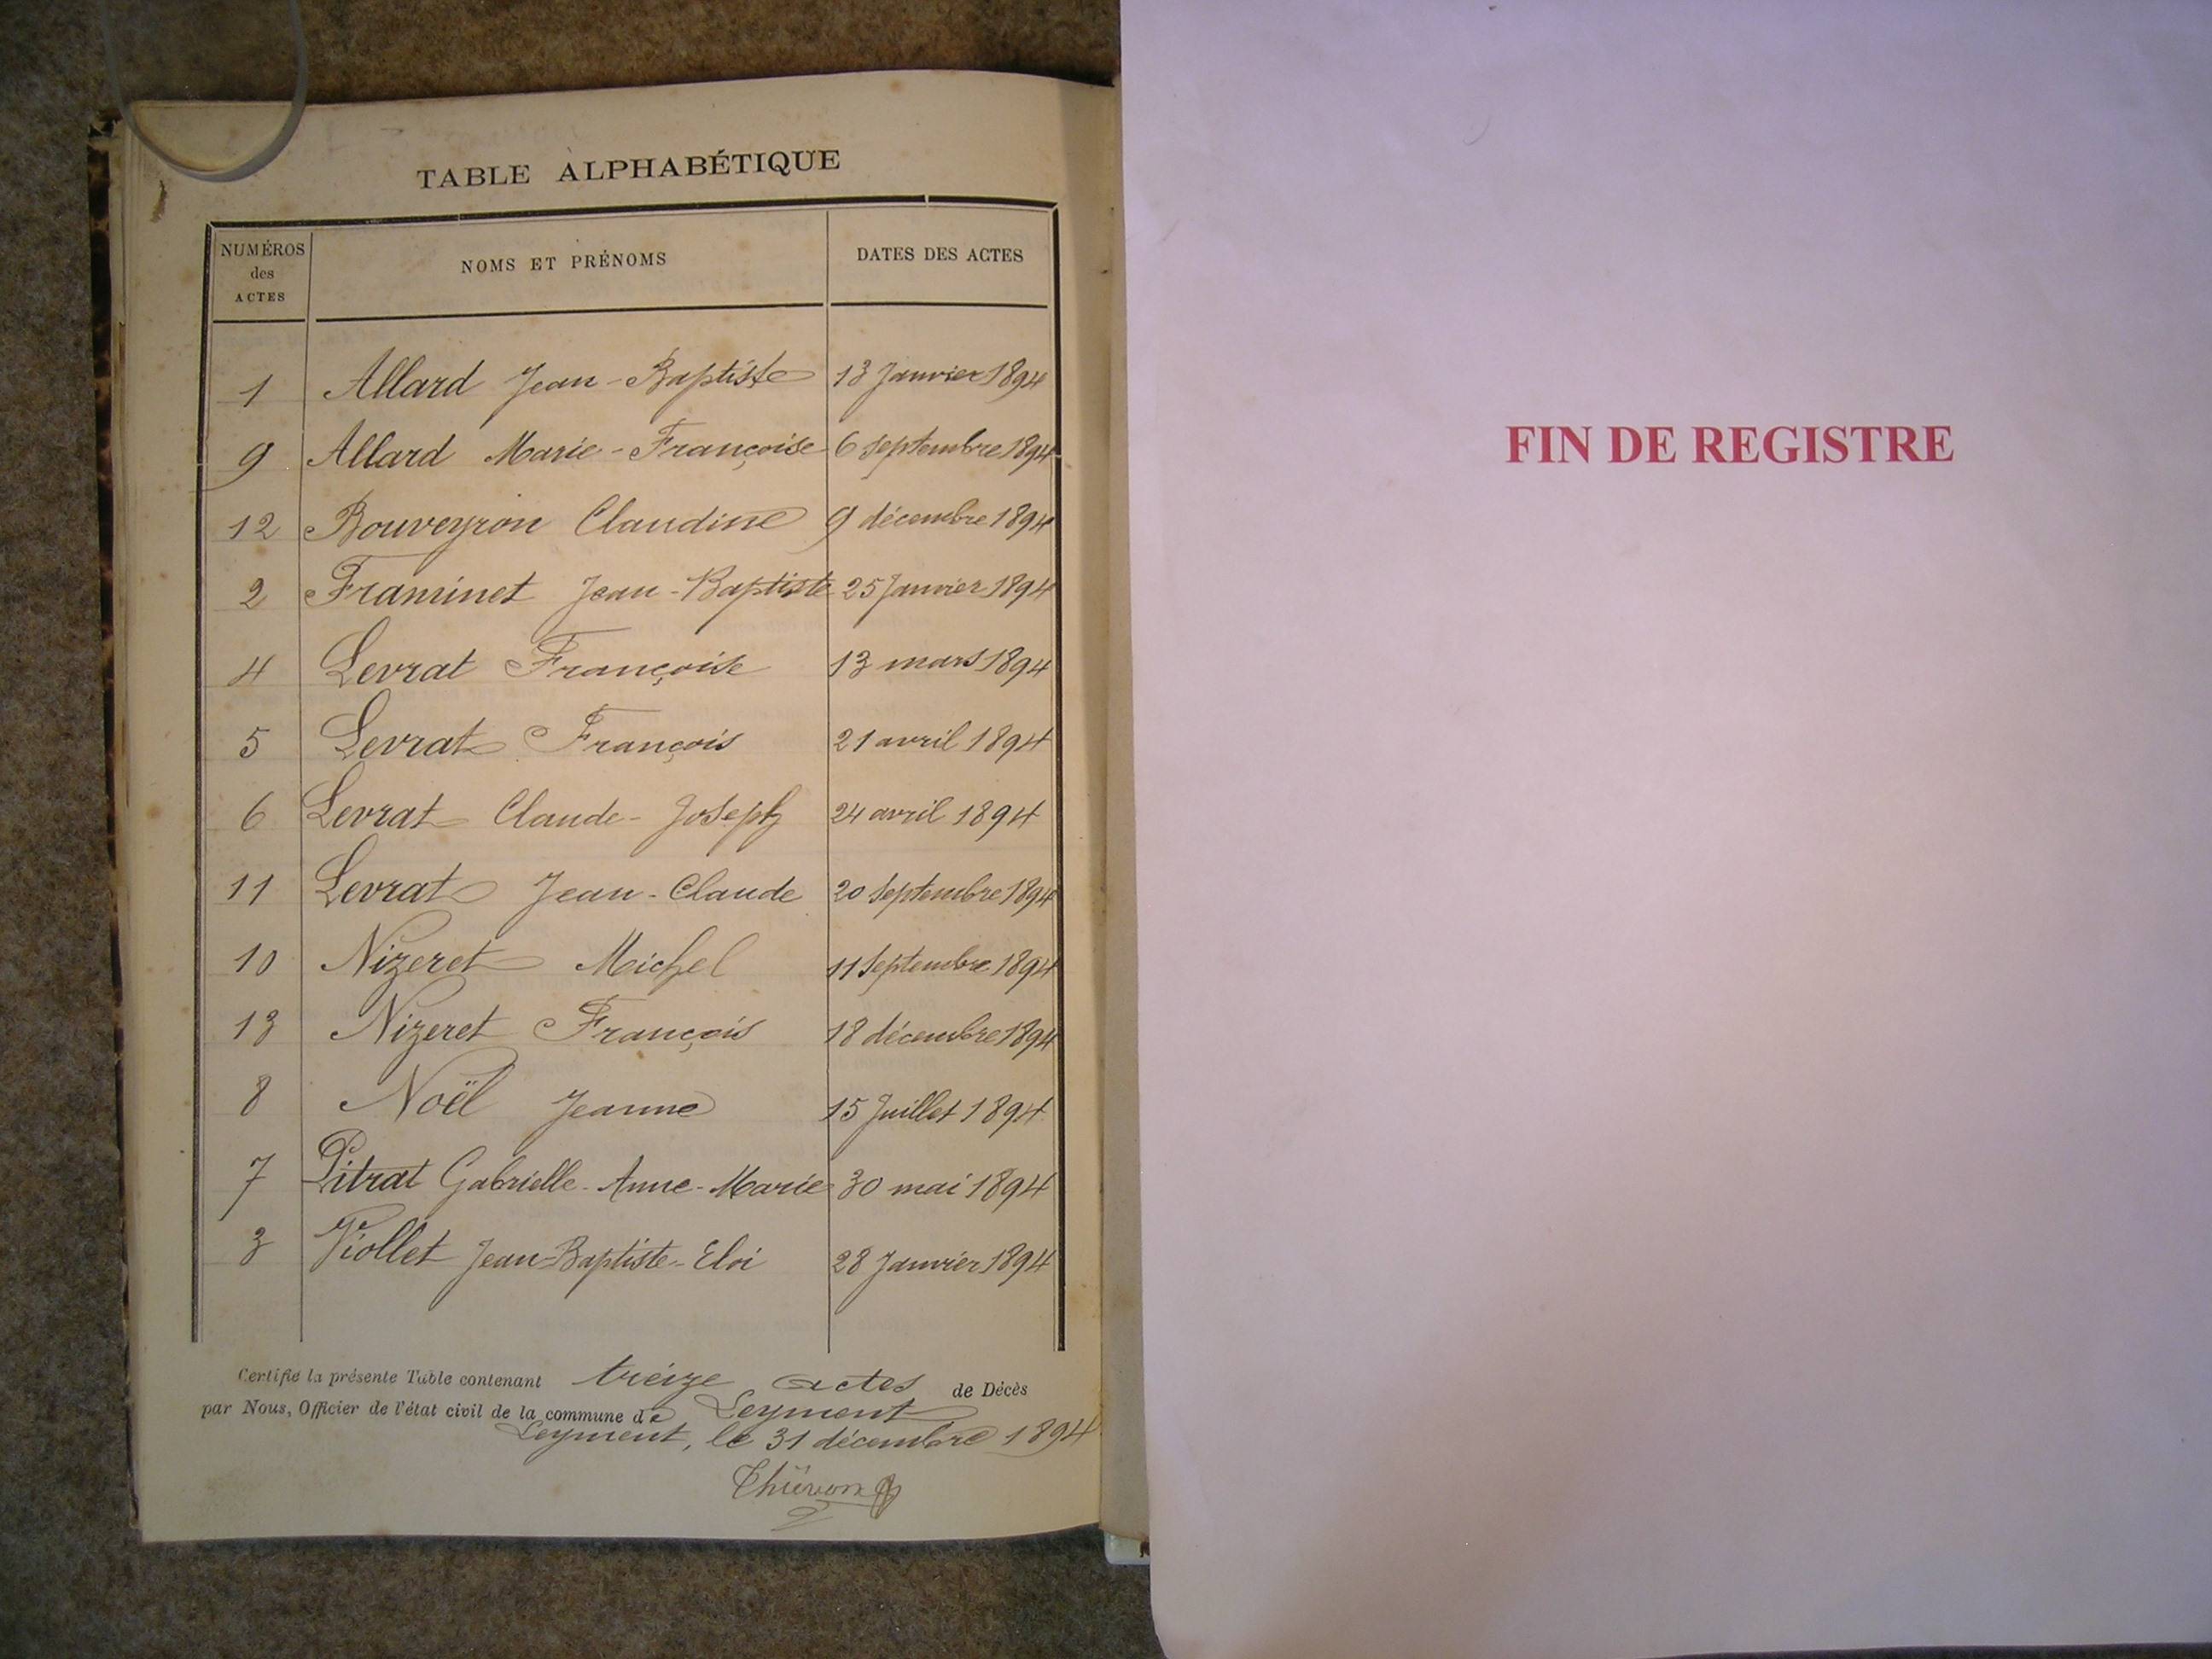 TABLE ALPHABÉTIQUE
NUMÉROS
des
ACTES
NOMS ET PRÉNOMS
DATES DES ACTES
1 Allard Jean-Baptiste 13 Janvier 1894
9 Allard Marie-Françoise 6 septembre 1894
12 Bouveyron Claudine 9 décembre 1894
2 Framinet Jean-Baptiste 25 Janvier 1894
4 Levrat Françoise 13 mars 1894
5 Levrat François 21 avril 1894
6 Levrat Claude-Joseph 24 avril 1894
11 Levrat Jean-Claude 20 septembre 1894
10 Nizeret Michel 11 septembre 1894
13 Nizeret François 18 décembre 1894
8 Noël Jeanne 15 Juillet 1894
7 Pitrat Gabrielle-Anne-Marie 30 mai 1894
3 Viollet Jean-Baptiste-Eloi 28 Janvier 1894
Certifié la présente Table contenant treize actes de Décès
par Nous, Officier de l'état civil de la commune de Leyment
Leyment, le 31 décembre 1894
FIN DE REGISTRE